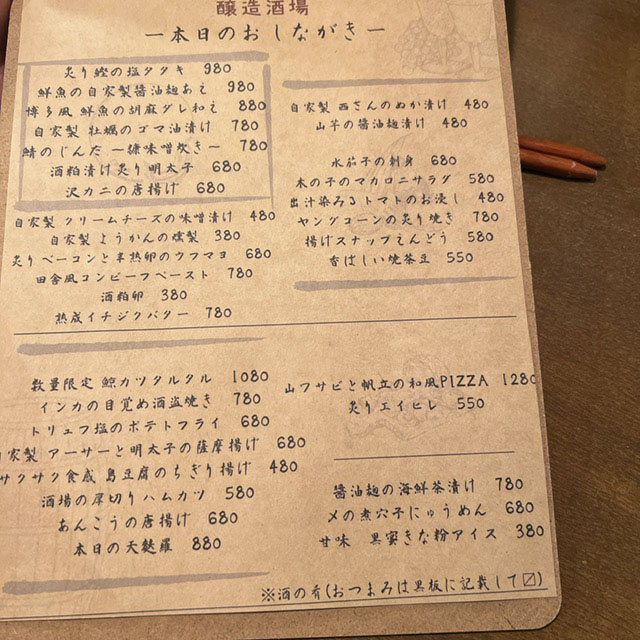 醸造酒場
ー本日のおしながきー
炙り鰹の塩タタキ 980
鮮魚の自家製醤油麹あえ 980
博多風 鮮魚の胡麻ダレ和え 880
自家製 牡蠣のゴマ油漬け 780
鯖のじんだ 〜糠味噌炊き〜 780
酒粕漬け炙り明太子 680
沢カニの唐揚げ 680
自家製 クリームチーズの味噌漬け 480
自家製 ようかんの燻製 380
炙りベーコンと半熟卵のウフマヨ 680
田舎風コンビーフペースト 780
酒粕卵 380
熟成イチジクバター 780
自家製 西さんのぬか漬け 480
山芋の醤油麹漬け 480
水茄子の刺身 680
木の子のマカロニサラダ 580
出汁染みるトマトのお浸し 480
ヤングコーンの炙り焼き 780
揚げスナップえんどう 580
香ばしい焼茶豆 550
数量限定 鯨カツタルタル 1080
インカの目覚め酒盗焼き 780
トリュフ塩のポテトフライ 680
自家製 アーサーと明太子の薩摩揚げ 680
サクサク食感 島豆腐のちぎり揚げ 480
酒場の厚切りハムカツ 580
あんこうの唐揚げ 680
本日の天麩羅 880
山ワサビと帆立の和風PIZZA 1280
炙りエイヒレ 550
醤油麹の海鮮茶漬け 780
〆の煮穴子にゅうめん 680
甘味 黒蜜きな粉アイス 380
※酒の肴(おつまみは黒板に記載して〼)